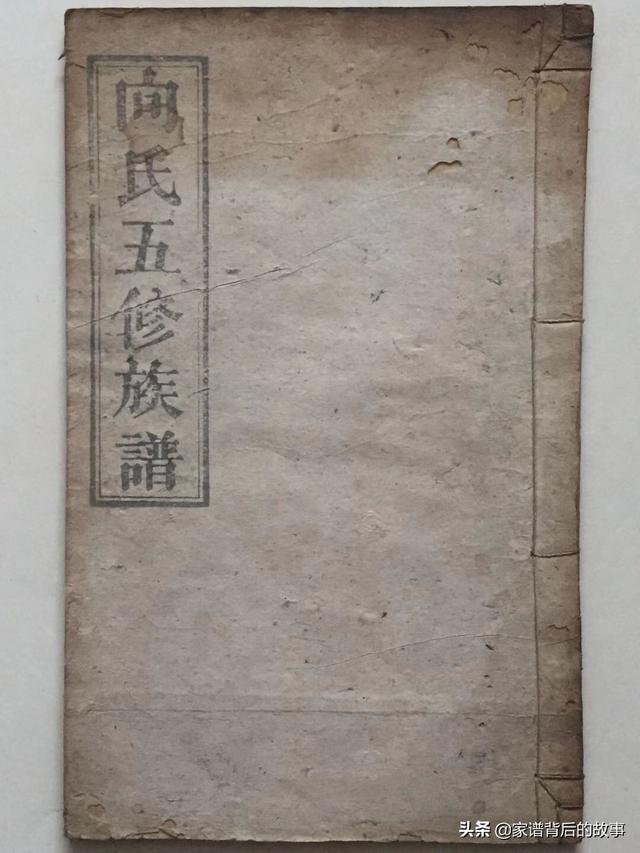 向氏五修族譜
头条 @家谱背后的故事